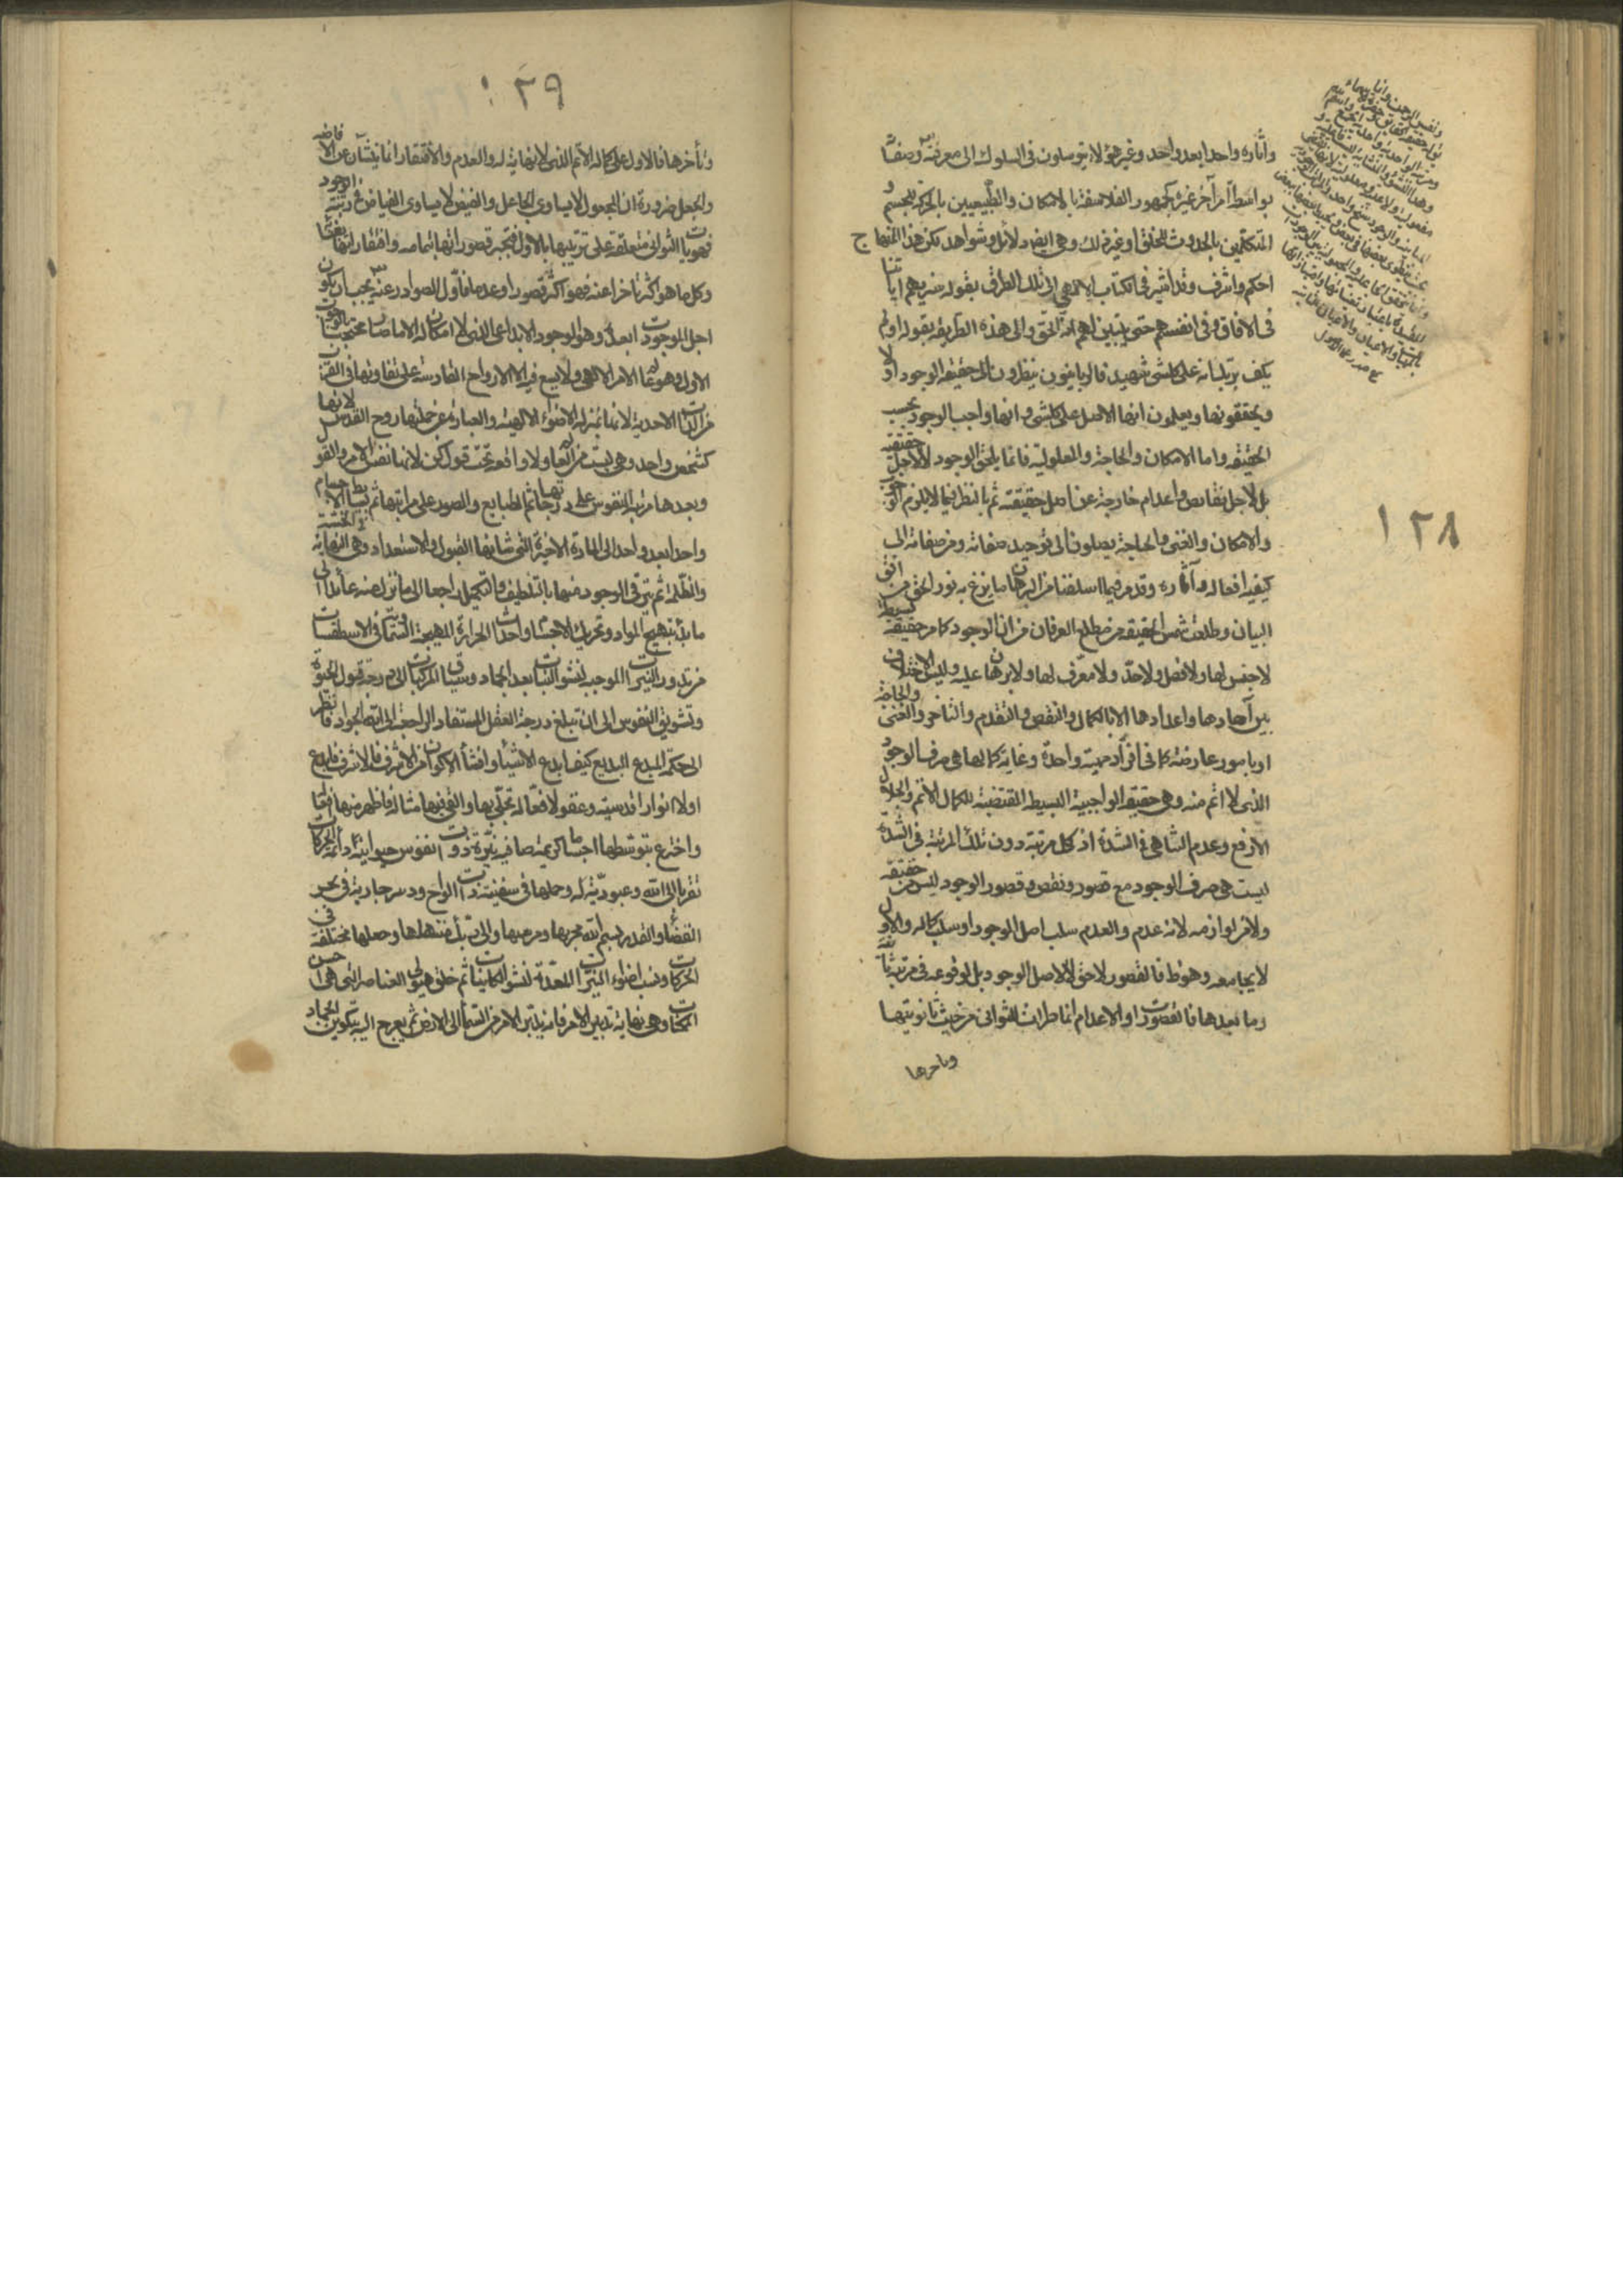 ١٢٨
وآثاره واحدا بعد واحد وغير هؤلاء يتوسلون فى السلوك الى معرفته وصفاته
بواسطة امر آخر غيره كجمهور الفلاسفة بالامكان والطبيعيين بالحركة للجسم و
المتكلمين بالحدوث للخلق او غير ذلك وهى ايضا دلائل وشواهد لكن هذا المنهاج
احكم واشرف وقد اشير فى الكتاب الالهى الى تلك الطرق بقوله سنريهم اياتنا
فى الافاق وفى انفسهم حتى يتبين لهم انه الحق والى هذه الطريقة بقوله اولم
يكف بربك انه على كلشئ شهيد فالربانيون ينظرون الى حقيقة الوجود اولا
ويحققونها ويعلمون انها الاصل على كلشئ وانها واجب الوجود بحسب
الحقيقة واما الامكان والحاجة والمعلولية فانما يلحق الوجود لا لاجل حقيقته
بل لاجل نقايص واعدام خارجة عن اصل حقيقته ثم بالنظر فيما يلزم الوجوب
والامكان والغنى والحاجة يصلون الى توحيد صفاته ومن صفاته الى
كيفية افعاله وآثاره وقد مر فيما اسلفنا من البرهان ما بزغ به نور الحق من افق
البيان وطلعت شمس الحقيقة من مطلع العرفان من ان الوجود كما مر حقيقة بسيطة
لا جنس لها ولا فصل ولا حد ولا معرف لها ولا برهان عليه وليس الاختلاف
بين آحادها واعدادها الا بالكمال والنقص والتقدم والتاخر والغنى والحاجة
او بامور عارضة كما فى افراد مهية واحدة وغاية كمالها هى صرف الوجود
الذى لا اتم منه وهى حقيقة الواجبية البسيطة المقتضية للكمال الاتم والجلال
الارفع وعدم التناهى فى الشدة اذ كل مرتبة دون تلك المرتبة فى الشدة
ليست هى صرف الوجود مع قصور ونقص وقصور الوجود ليس من حقيقته
ولا من لوازمه لانه عدم والعدم سلب اصل الوجود او سلب كماله والاول
لا يجامعه وهو ظ فالقصور لاحق لا لاصل الوجود بل لوقوعه فى مرتبة ثانية
وما بعدها فالقصورات او الاعدام انما طرات للثوانى من حيث ثانويتها
وتاخرها
١٢٩
وتأخرها فالاول على كماله الاتم الذى لا نهاية له والعدم والافتقار انما ينشآن عن الافاضة
والجعل ضرورة ان المجعول لا يساوى الجاعل والفيض لا يساوى الفياض فى رتبة الوجود
فهويات الثوانى متعلقة على ترتيبها بالاول فتنجبر قصوراتها بتمامه وافتقاراتها بغناه
وكل ما هو اكثر تاخرا عنه فهو اكثر قصورا وعدما فاول الصوادر عنه تعالى يجب ان يكون
اجل الموجودات بعده وهو الوجود الابداعى الذى لا امكان له الا ما صار محتجبا بالوجوب
الاول وهو عالم الامر الالهى ولا يسع فيه الا الارواح القادسة على تفاوتها فى القرب
من الذات الاحدية لانها بمنزلة الاضواء الالهية والعبارة عن جملتها روح القدس لانها
كشخص واحد وهى ليست من العالم ولا واقعة تحت قول كن لانها نفس الامر والقول
وبعدها مرتبة النفوس على درجاتها ثم الطبايع والصور على مراتبها ثم بسائط الاجسام
واحدا بعد واحد الى المادة الاخيرة التى شانها القبول والاستعداد وهى النهاية فى الخسة
والظلمة ثم يترقى الوجود منها بالتلطيف والتكميل راجعا الى ما نزل منه عائدا الى
ما بدأ بتهييج المواد وتحريك الاجساد واحداث الحرارة المهيجة السماوية فى الاسطقسات
من تدوير النيرات الموجبة لنشو النبات بعد الجماد وسياق المركبات الى درجة قبول الحيوة
وتشويق النفوس الى ان تبلغ درجة العقل المستفاد الراجعة الى الله الجواد فانظر
الى حكمة المبدع البديع كيف ابدع الاشياء وانشأ الاكوان من الاشرف فالاشرف فابدع
اولا انوارا قدسية وعقولا فعالة تجلى بها والقى فيها مثاله فاظهر منها افعاله
واخترع بتوسطها اجساما كريمة صافية نيرة ذوات نفوس حيوانية دائمة الحركات
تقربا الى الله وعبودية له وحملها فى سفينة ذات الواح ودسر جارية فى بحر
القضاء والقدر بسم الله مجريها ومرسيها والى ربك منتهاها وجعلها مختلفة فى
الحركات ونسب اضواء النيرات المعدة لنشو الكاينات ثم خلق هيولى العناصر التى هى اخس
الممكنات وهى نهاية تدبير الامر فانه يدبر الامر من السماء الى الارض ثم يعرج اليه بتكوين الجماد